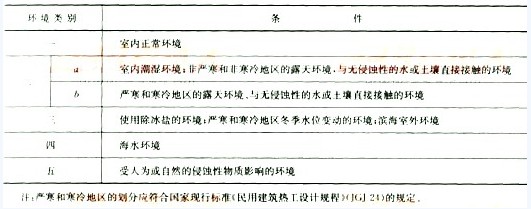 环境类别 条件
一 室内正常环境
a 室内潮湿环境;非严寒和非寒冷地区的露天环境、与无侵蚀性的水或土壤直接接触的环境
b 严寒和寒冷地区的露天环境、与无侵蚀性的水或土壤直接接触的环境
三 使用除冰盐的环境;严寒和寒冷地区冬季水位变动的环境;滨海室外环境
四 海水环境
五 受人为或自然的侵蚀性物质影响的环境
注:严寒和寒冷地区的划分应符合国家现行标准《民用建筑热工设计规程》(JGJ 24)的规定。